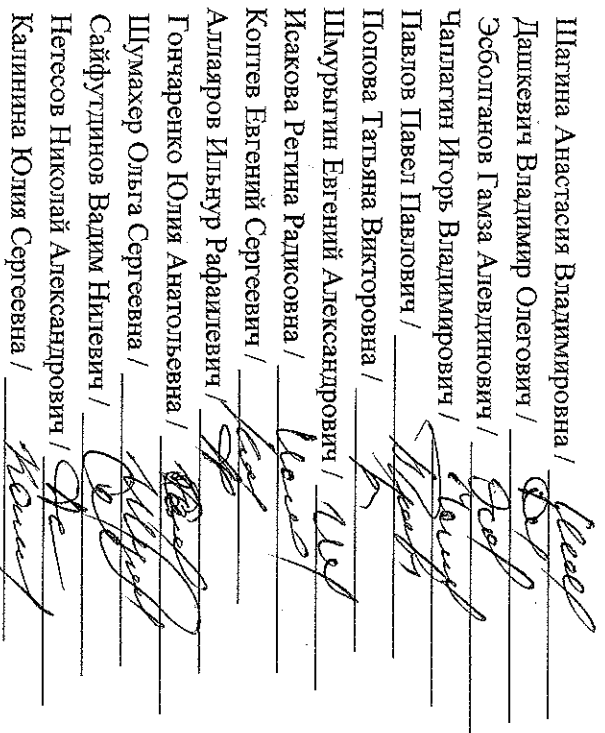 Шагина Анастасия Владимировна /
Дашкевич Владимир Олегович /
Эсболганов Гамза Алевдинович /
Чаплагин Игорь Владимирович /
Павлов Павел Павлович /
Попова Татьяна Викторовна /
Шмурыгин Евгений Александрович /
Исакова Регина Радисовна /
Коптев Евгений Сергеевич /
Аллаяров Ильнур Рафаилевич /
Гончаренко Юлия Анатольевна /
Шумахер Ольга Сергеевна /
Сайфутдинов Вадим Нилевич /
Нетесов Николай Александрович /
Калинина Юлия Сергеевна /